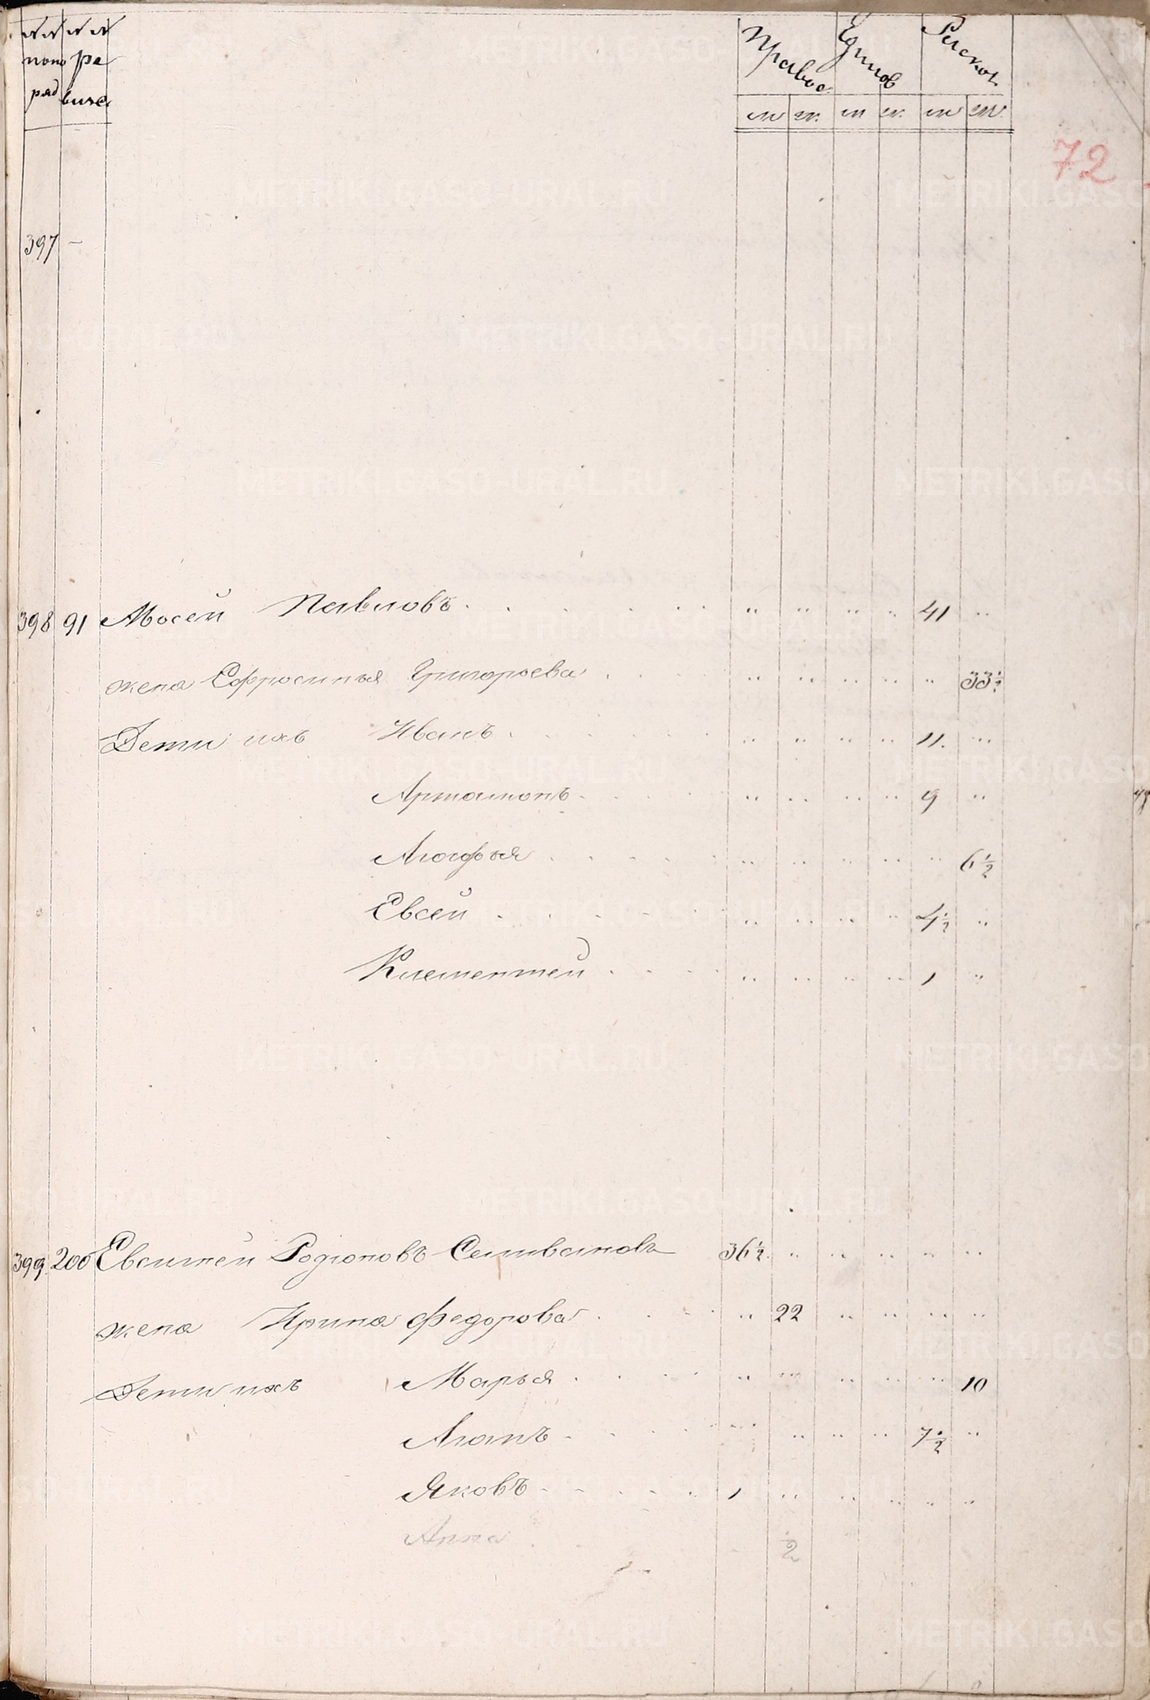 №№ №№ Правос. Единов Раскол.
попо ре
ряд. визс.
м ж. м ж. м ж.
72
397 —
398 91 Мосей Павловъ 41
жена Ефросинья Григорьева 33½
Дети ихъ Иванъ 11.
Артамонъ 9
Агафья 6½
Евсей 4½
Клементей 1
399 200 Евсигней Родионовъ Селивановъ 36½
жена Ирина Федорова 22
Дети ихъ Марья 10
Агапъ 7½
Яковъ 1
Анна ½
METRIKI.GASO-URAL.RU